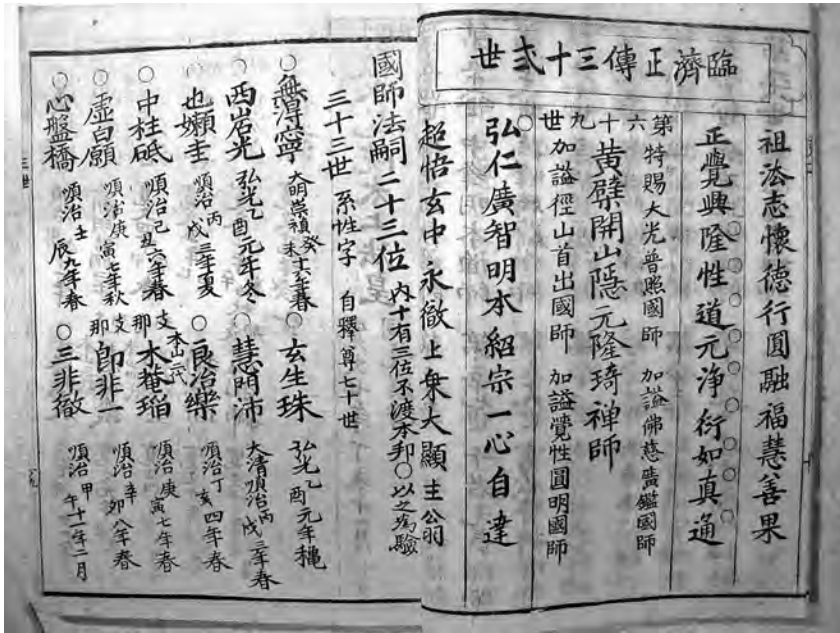 臨濟正傳三十弍世
祖法志懷德行圓融福慧善果
正覺興隆性道元淨衍如真通
特賜大光普照國師 加謚佛慈廣鑑國師
第六十九世
黃檗開山隱元隆琦禪師
加謚徑山首出國師 加謚覺性圓明國師
弘仁廣智明本紹宗一心自達
超悟玄中永徹上乗大顯主公翁
國師法嗣二十三位 内十有三位不渡本邦○以之為驗
三十三世 系性字 自釋尊七十世
○無得寧 大明崇禎癸未十六年春 ○玄生珠 弘光乙酉元年穐
○西岩光 弘光乙酉元年冬 ○慧門沛 大清順治丙戌三年春
○也嬾圭 順治丙戌三年夏 ○良冶樂 順治丁亥四年春
○中柱砥 順治己丑六年春 支那 木菴瑫 本山二代 順治庚寅七年春
○虛白願 順治庚寅七年秋 支那 即非一 順治辛卯八年春
○心盤橋 順治壬辰九年春 ○三非徹 順治甲午十一年二月